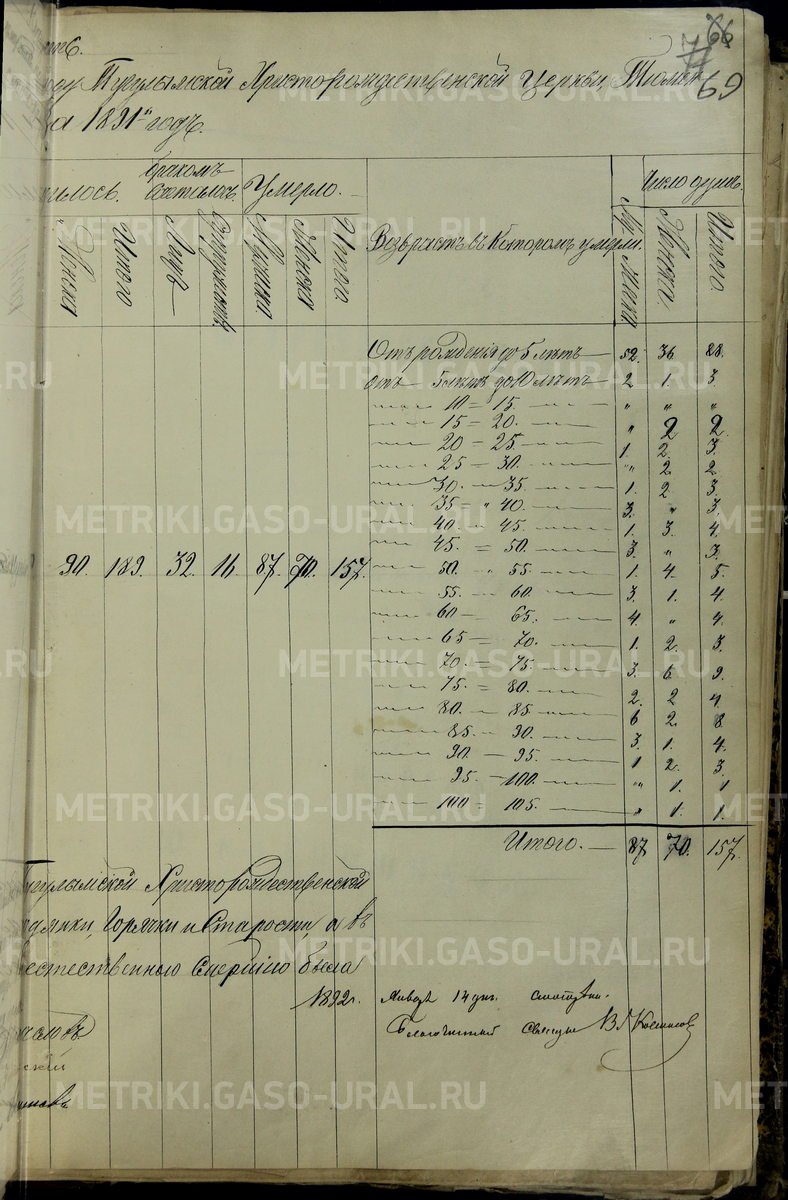 66
69
Тугулымской Христорождественской Церкви, Тюмен
за 1891й годъ.
бракомъ
илось. Сочеталось. Умерло.
Число душъ.
Женска Итого Лицъ Супружествъ Мужска Женска Итого
Возврастъ въ Которомъ умерли.
Му. Мска Женска Итого.
Отъ рожденія до 5 лѣтъ 52. 36 88.
отъ 5 лѣтъ до 10 лѣтъ 2 1. 3.
10 = 15. " " "
15 = 20. " 2 2.
20 = 25. 1. 2. 3.
25 = 30. " 2. 2.
30. — 35. 1. 2 3.
35 = " 40. 3. " 3.
40. — 45. 1. 3. 4.
45. = 50. 3. " 3.
90. 189. 32. 16. 87. 70. 157.
50. " 55. 1. 4. 5.
55. — 60. 3. 1. 4.
60 — 65. 4. " 4.
65 = 70. 1. 2. 3.
70. = 75. 3. 6. 9.
75. = 80. 2. 2 4.
80. — 85. 6 2. 8.
85. — 90. 3. 1. 4.
90. — 95. 1 2. 3
95. — 100. " 1. 1
100 = 105. " 1. 1.
Итого. — 87. 70. 157.
Тугулымской Христорождественской
Горячки и Старости, а въ
естественною Смертію была
1892г. Января 14 дня. смотрѣлъ.
Благочинный Священ
METRIKI.GASO-URAL.RU